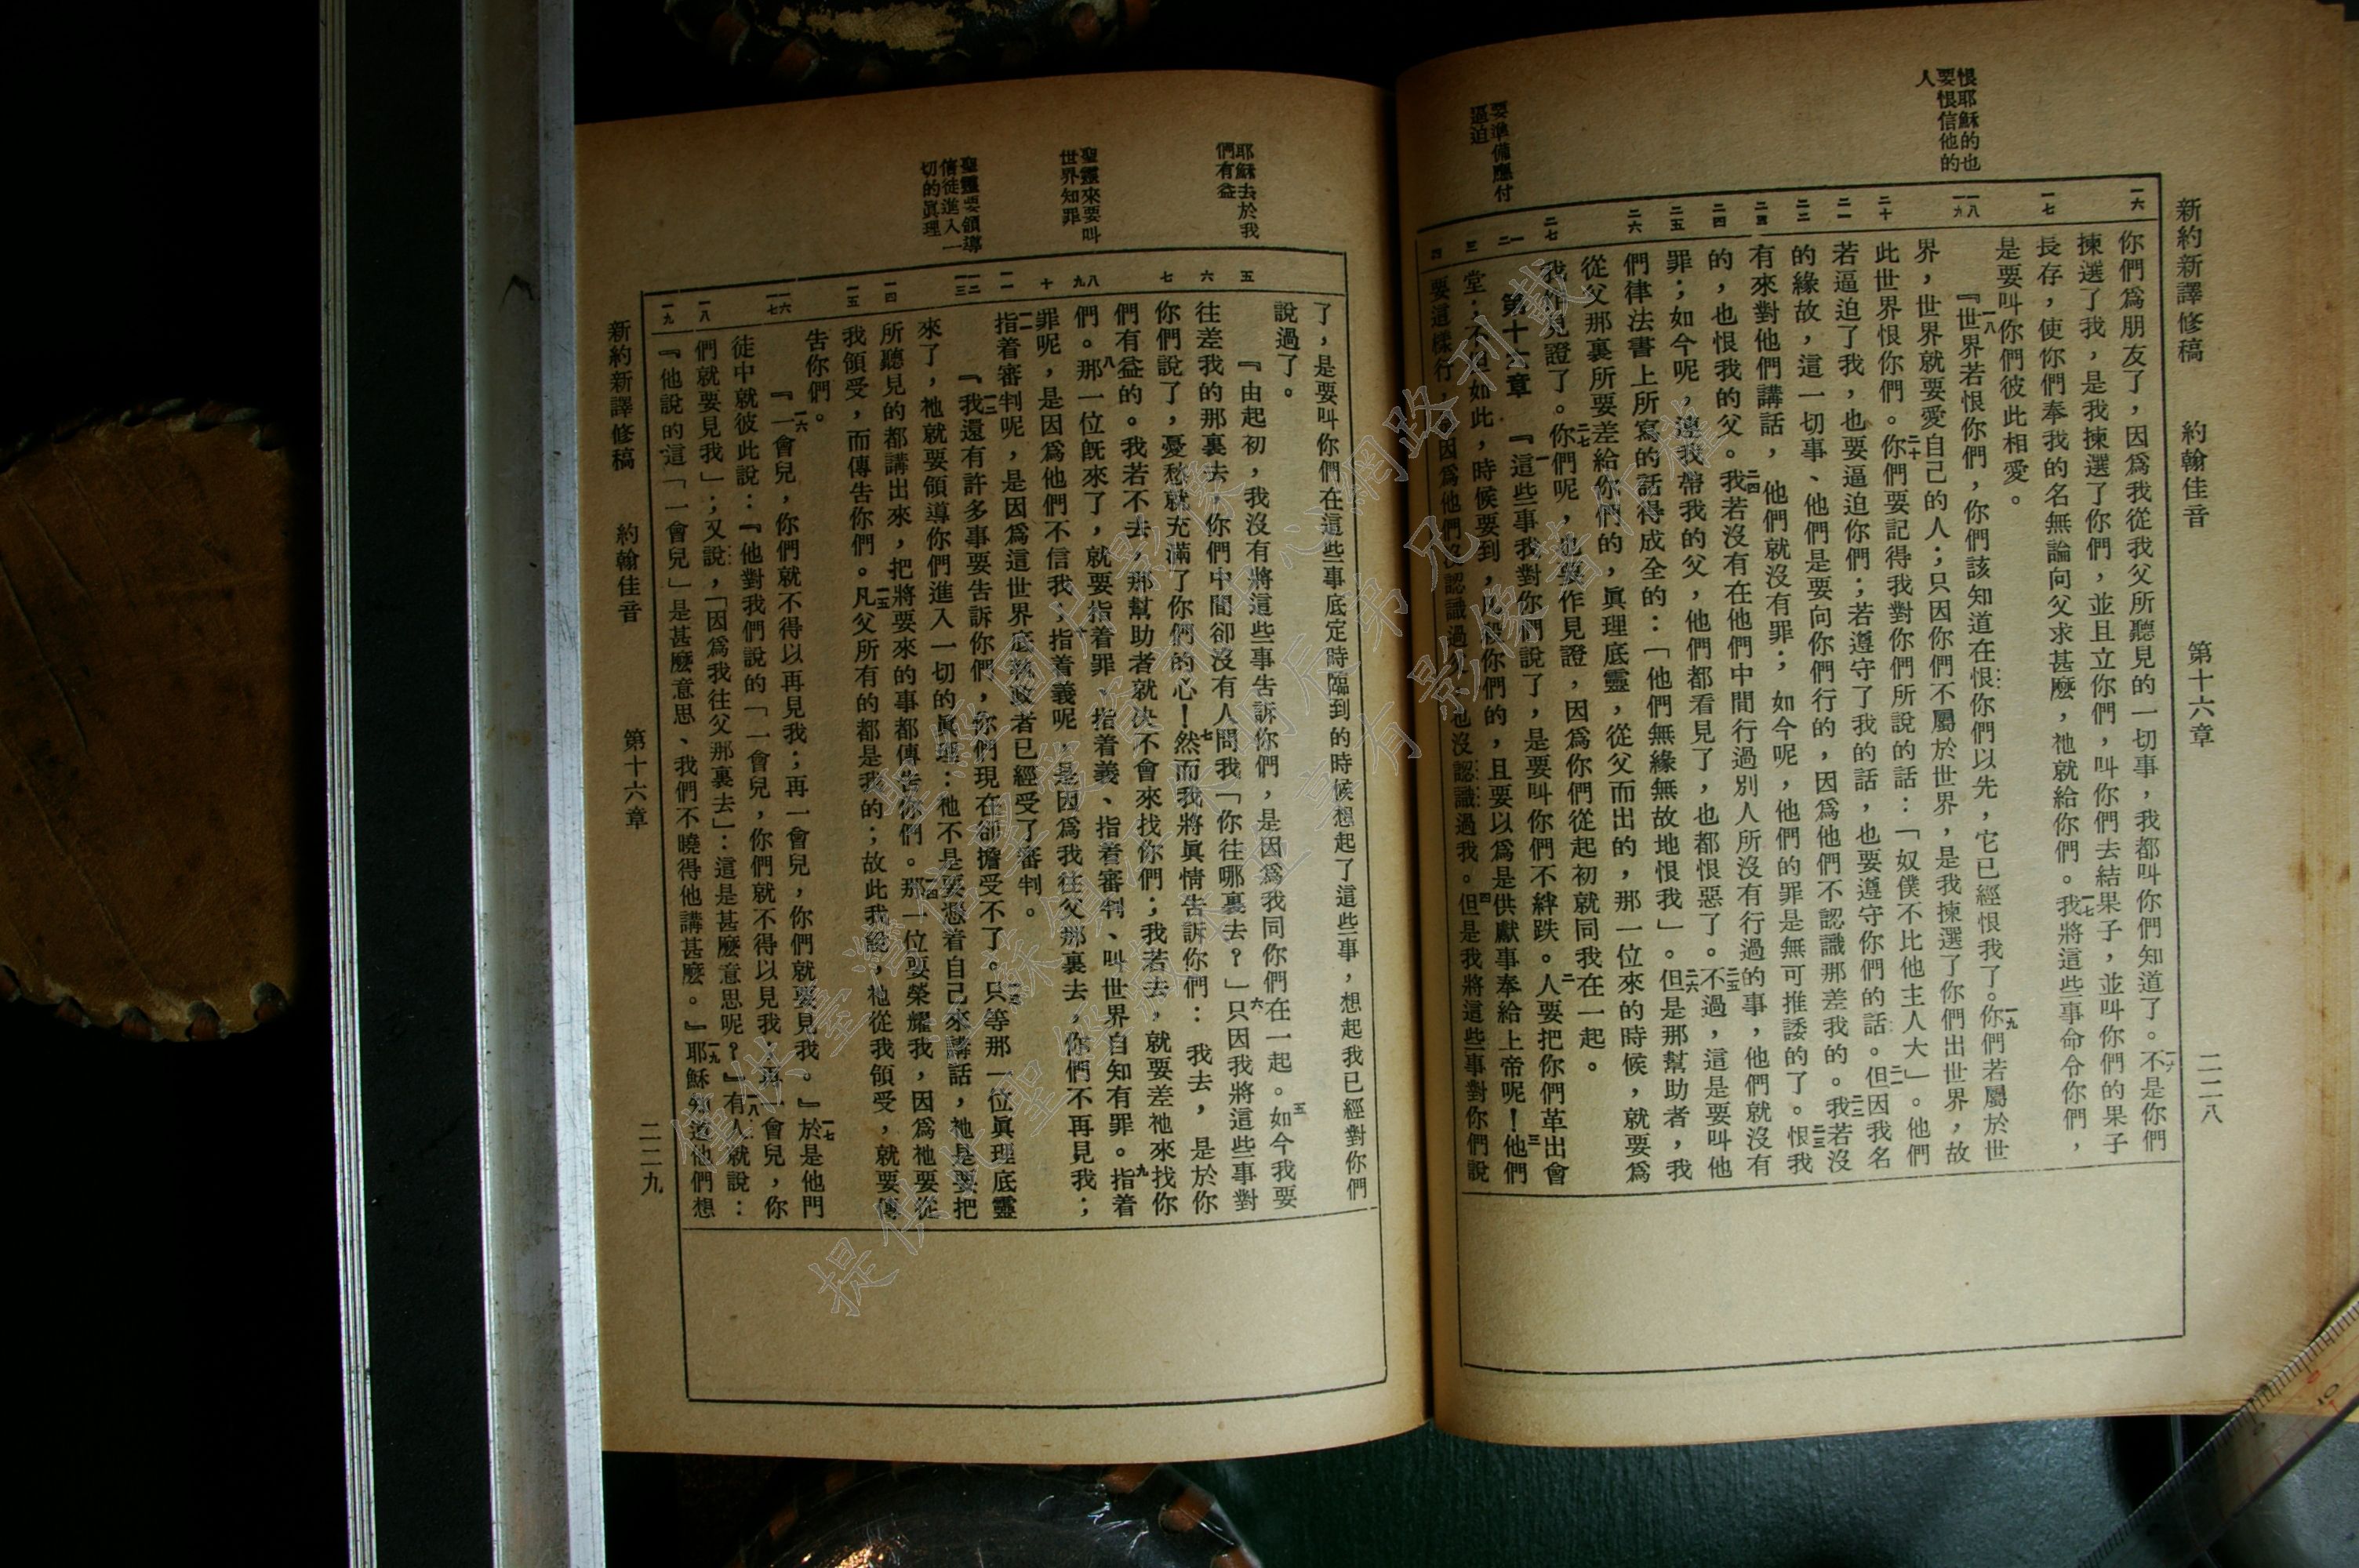 新約新譯修稿　約翰佳音　第十六章　二二八
恨耶穌的也
要恨信他的
人
要準備應付
逼迫
一六
一七
一八
一九
二十
二一
二二
二三
二四
二五
二六
二七
一
二
三
四
你們爲朋友了，因爲我從我父所聽見的一切事，我都叫你們知道了。一六不是你們
揀選了我，是我揀選了你們，並且立你們，叫你們去結果子，並叫你們的果子
長存，使你們奉我的名無論向父求甚麼，祂就給你們。一七我將這些事命令你們，
是要叫你們彼此相愛。
一八『世界若恨你們，你們該知道在恨你們以先，它已經恨我了。一九你們若屬於世
界，世界就要愛自己的人；只因你們不屬於世界，是我揀選了你們出世界，故
此世界恨你們。二十你們要記得我對你們所說的話：「奴僕不比他主人大」。他們
若逼迫了我，也要逼迫你們；若遵守了我的話，也要遵守你們的話。二一但因我名
的緣故，這一切事、他們是要向你們行的，因爲他們不認識那差我的。二二我若沒
有來對他們講話，他們就沒有罪；如今呢，他們的罪是無可推諉的了。二三恨我
的，也恨我的父。二四我若沒有在他們中間行過別人所沒有行過的事，他們就沒有
罪；如今呢，連我帶我的父，他們都看見了，也都恨惡了。二五不過，這是要叫他
們律法書上所寫的話得成全的：「他們無緣無故地恨我」。二六但是那幫助者，我
從父那裏所要差給你們的，眞理底靈，從父而出的，那一位來的時候，就要爲
我作見證了。二七你們呢，也要作見證，因爲你們從起初就同我在一起。
第十六章　一『這些事我對你們說了，是要叫你們不絆跌。二人要把你們革出會
堂；不但如此，時候要到，凡殺你們的，且要以爲是供獻事奉給上帝呢！三他們
要這樣行，因爲他們沒認識過父，也沒認識過我。四但是我將這些事對你們說
耶穌去於我
們有益
聖靈來要叫
世界知罪
聖靈要領導
信徒進入一
切的眞理
五
六
七
八
九
十
一一
一二
一三
一四
一五
一六
一七
一八
一九
了，是要叫你們在這些事底定時臨到的時候想起了這些事，想起我已經對你們
說過了。
『由起初，我沒有將這些事告訴你們，是因爲我同你們在一起。五如今我要
往差我的那裏去，你們中間卻沒有人問我「你往哪裏去？」六只因我將這些事對
你們說了，憂愁就充滿了你們的心！七然而我將眞情告訴你們：我去，是於你
們有益的。我若不去，那幫助者就決不會來找你們；我若去，就要差祂來找你
們。八那一位旣來了，就要指着罪、指着義、指着審判、叫世界自知有罪。九指着
罪呢，是因爲他們不信我；十指着義呢，是因爲我往父那裏去，你們不再見我；
一一指着審判呢，是因爲這世界底執政者已經受了審判。
一二『我還有許多事要告訴你們，你們現在卻擔受不了。一三只等那一位眞理底靈
來了，祂就要領導你們進入一切的眞理：祂不是要憑着自己來講話，祂是要把
所聽見的都講出來，把將要來的事都傳告你們。一四那一位要榮耀我，因爲祂要從
我領受，而傳告你們。一五凡父所有的都是我的；故此我說，祂從我領受，就要傳
告你們。
一六『一會兒，你們就不得以再見我；再一會兒，你們就要見我。』一七於是他門
徒中就彼此說：『他對我們說的「一會兒，你們就不得以見我，再一會兒，你
們就要見我」；又說，「因爲我往父那裏去」：這是甚麼意思呢？』一八有人就說：
『他說的這「一會兒」是甚麼意思、我們不曉得他講甚麼。』一九耶穌知道他們想
新約新譯修稿　約翰佳音　第十六章　二二九